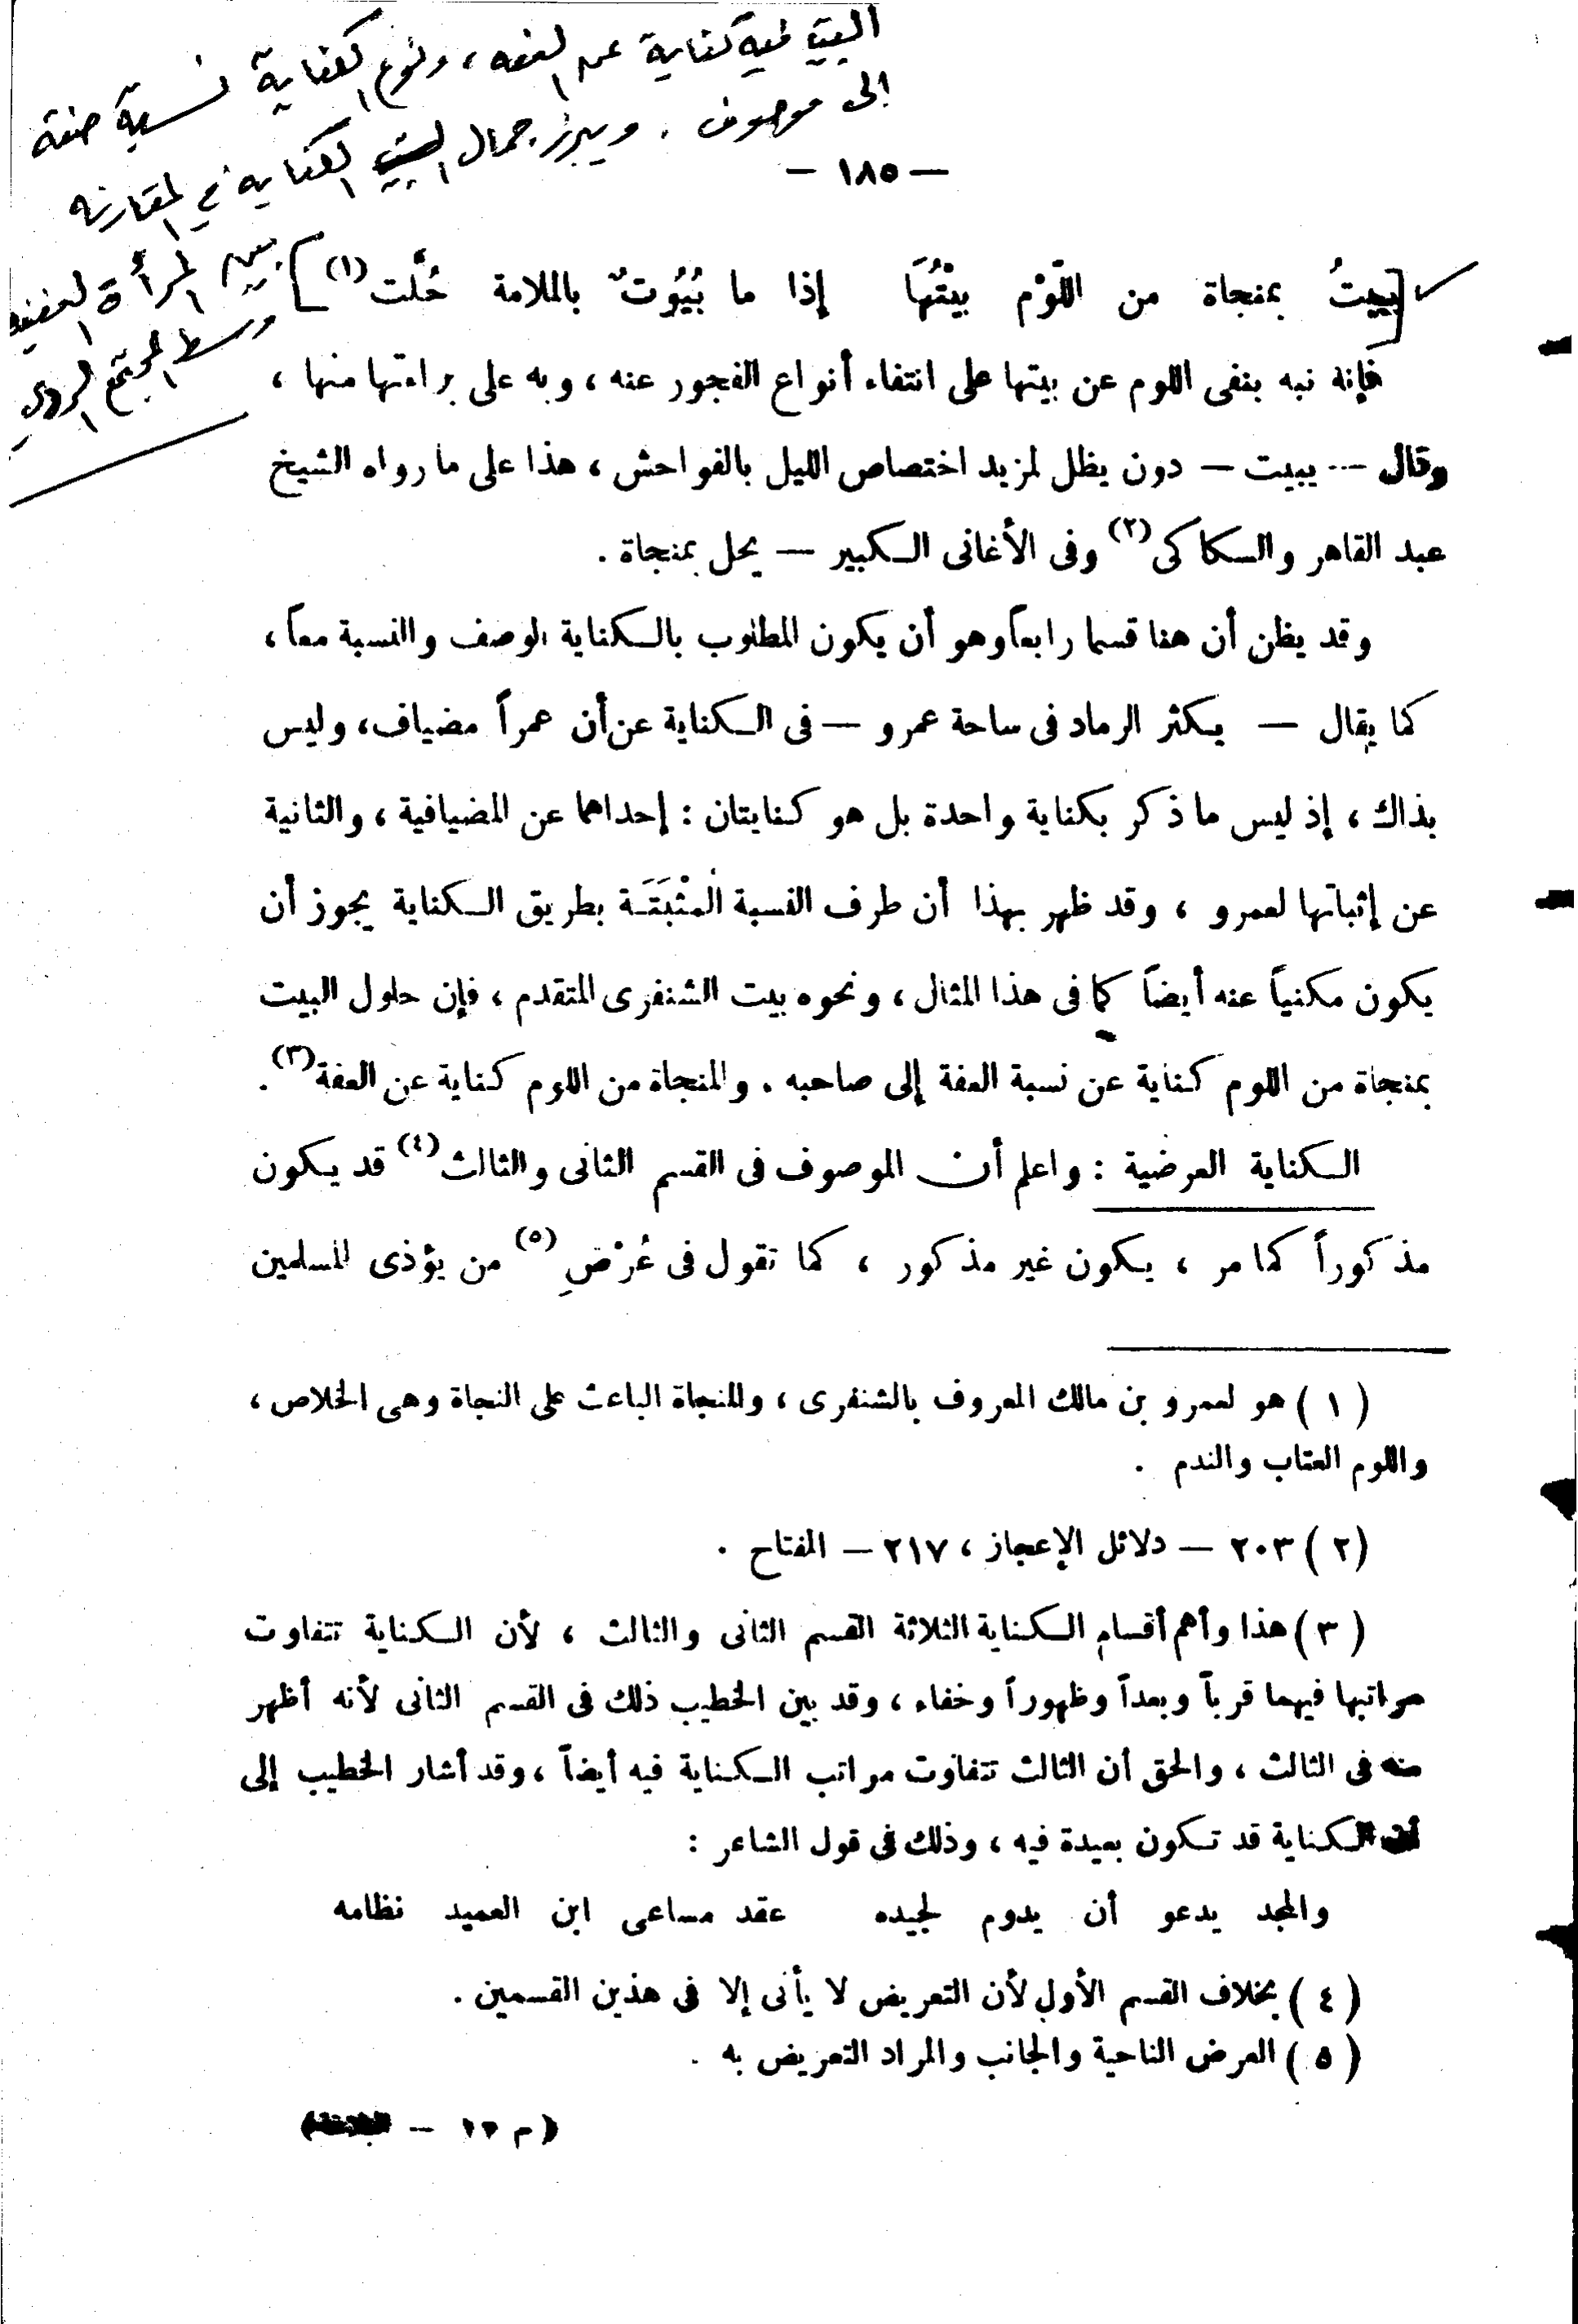 البيت فيه كناية عن العفه، ونوع الكناية نسبة صفة
الى موصوف . ويبرز جمال الكنايه في المقارنه
بين المرأة العفيفه
وسط المجتمع الردئ
— ١٨٥ —
يبيتُ بمنجاة من اللّوْم بيْتُهَا إذا ما بُيُوتٌ بالملامة حُلَّت (١)
فإنه نبه بنفى اللوم عن بيتها على انتفاء أنواع الفجور عنه ، وبه على براءتها منها ،
وقال — يبيت — دون يظل لمزيد اختصاص الليل بالفواحش ، هذا على ما رواه الشيخ
عبد القاهر والسكاكى (٢) وفى الأغانى الكبير — يحل بمنجاة .
وقد يظن أن هنا قسما رابعاً وهو أن يكون المطلوب بالكناية الوصف والنسبة معاً ،
كما يقال — يكثر الرماد فى ساحة عمرو — فى الكناية عن أن عمراً مضياف ، وليس
بذاك ، إذ ليس ما ذكر بكناية واحدة بل هو كنايتان : إحداهما عن المضيافية ، والثانية
عن إثباتها لعمرو ، وقد ظهر بهذا أن طرف النسبة الُمثْبَتَـَة بطريق الكناية يجوز أن
يكون مكنياً عنه أيضاً كما فى هذا المثال ، ونحوه بيت الشنفرى المتقدم ، فإن حلول البيت
بمنجاة من اللوم كناية عن نسبة العفة إلى صاحبه . والمنجاة من اللوم كناية عن العفة (٣) .
الكناية العرضية : واعلم أن الموصوف فى القسم الثانى والثالث (٤) قد يكون
مذكوراً كما مر ، يكون غير مذكور ، كما تقول فى عُرْضِ (٥) من يؤذى المسلمين
( ١ ) هو لعمرو بن مالك المعروف بالشنفرى ، والمنجاة الباعث على النجاة وهى الخلاص ،
واللوم العتاب والندم .
( ٢ ) ٢٠٣ — دلائل الإعجاز ، ٢١٧ — المفتاح .
( ٣ ) هذا وأهم أقسام الكناية الثلاثة القسم الثانى والثالث ، لأن الكناية تتفاوت
مراتبها فيهما قرباً وبعداً وظهوراً وخفاء ، وقد بين الخطيب ذلك فى القسم الثانى لأنه أظهر
منه فى الثالث ، والحق أن الثالث تتفاوت مراتب الكناية فيه أيضاً ، وقد أشار الخطيب إلى
أن الكناية قد تكون بعيدة فيه ، وذلك فى قول الشاعر :
والمجد يدعو أن يدوم لجيده عقد مساعى ابن العميد نظامه
( ٤ ) بخلاف القسم الأول لأن التعريض لا يأتى إلا فى هذين القسمين .
( ٥ ) العرض الناحية والجانب والمراد التعريض به .
( م ١٢ —